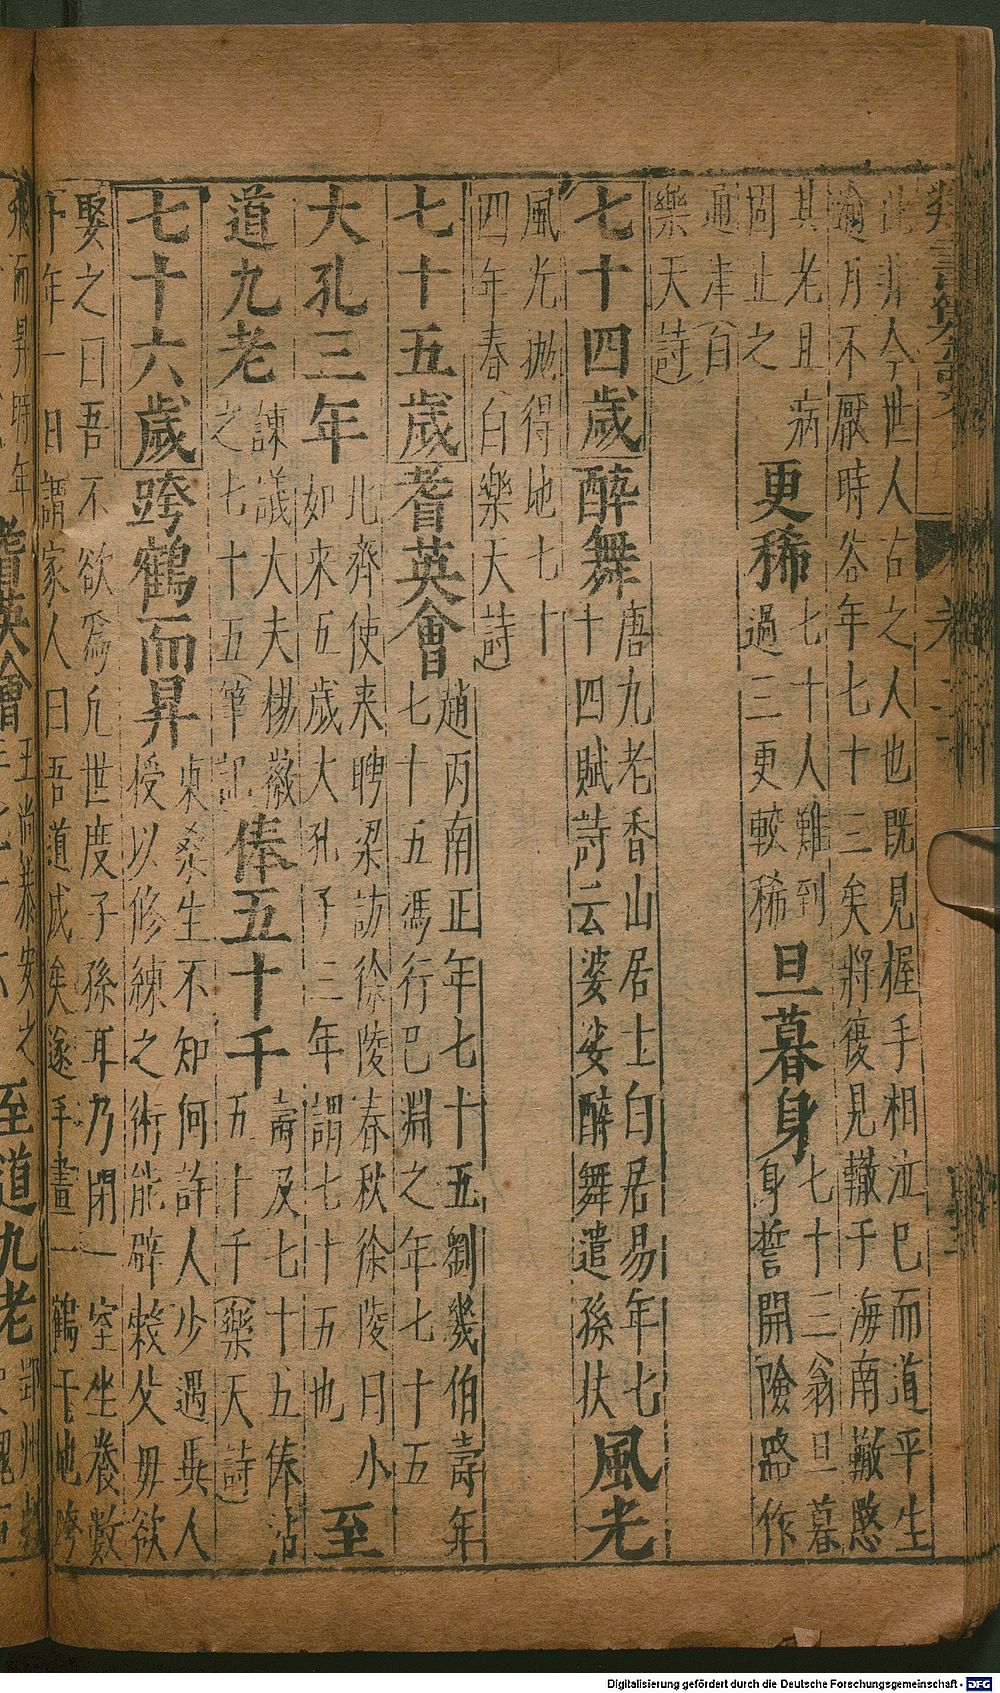 此非今世人古之人人也既見握手相泣已而道平生
逾月不厭時谷年七十三矣將復見轍于海南轍愍
其老且病
止之
更稀
七十人難到
過三更較稀
旦暮身
七十三翁旦暮
身誓開險路作
通津白
樂天詩
七十四歲
醉舞
唐九老香山居士白居易年七
十四賦詩云婆娑醉舞遣孫扶
風光
風光拋得也七十
四年春白樂天詩
七十五歲
耆英會
趙丙南正年七十五劉幾伯壽年
七十五馮行巳淵之年七十五
大孔三年
北齊使来聘梁訪徐陵春秋徐陵曰小
如來五歲大孔子三年謂七十五也
至
道九老
諫議大夫楊徽
之七十五筆記
俸五十千
壽及七十五俸沾
五十千樂天詩
七十六歲
跨鶴而昇
東桑生不知何許人少遇異人
授以修練之術能辟穀父毋欲
娶之曰吾不欲爲凡世度子孫耳乃閉一室坐養數
十年一日謂家人曰吾道成矣遂手畫一鶴于地跨
而昇時年
耆英會
王尚恭安之
至道九老
Digitalisierung gefördert durch die Deutsche Forschungsgemeinschaft - DFG